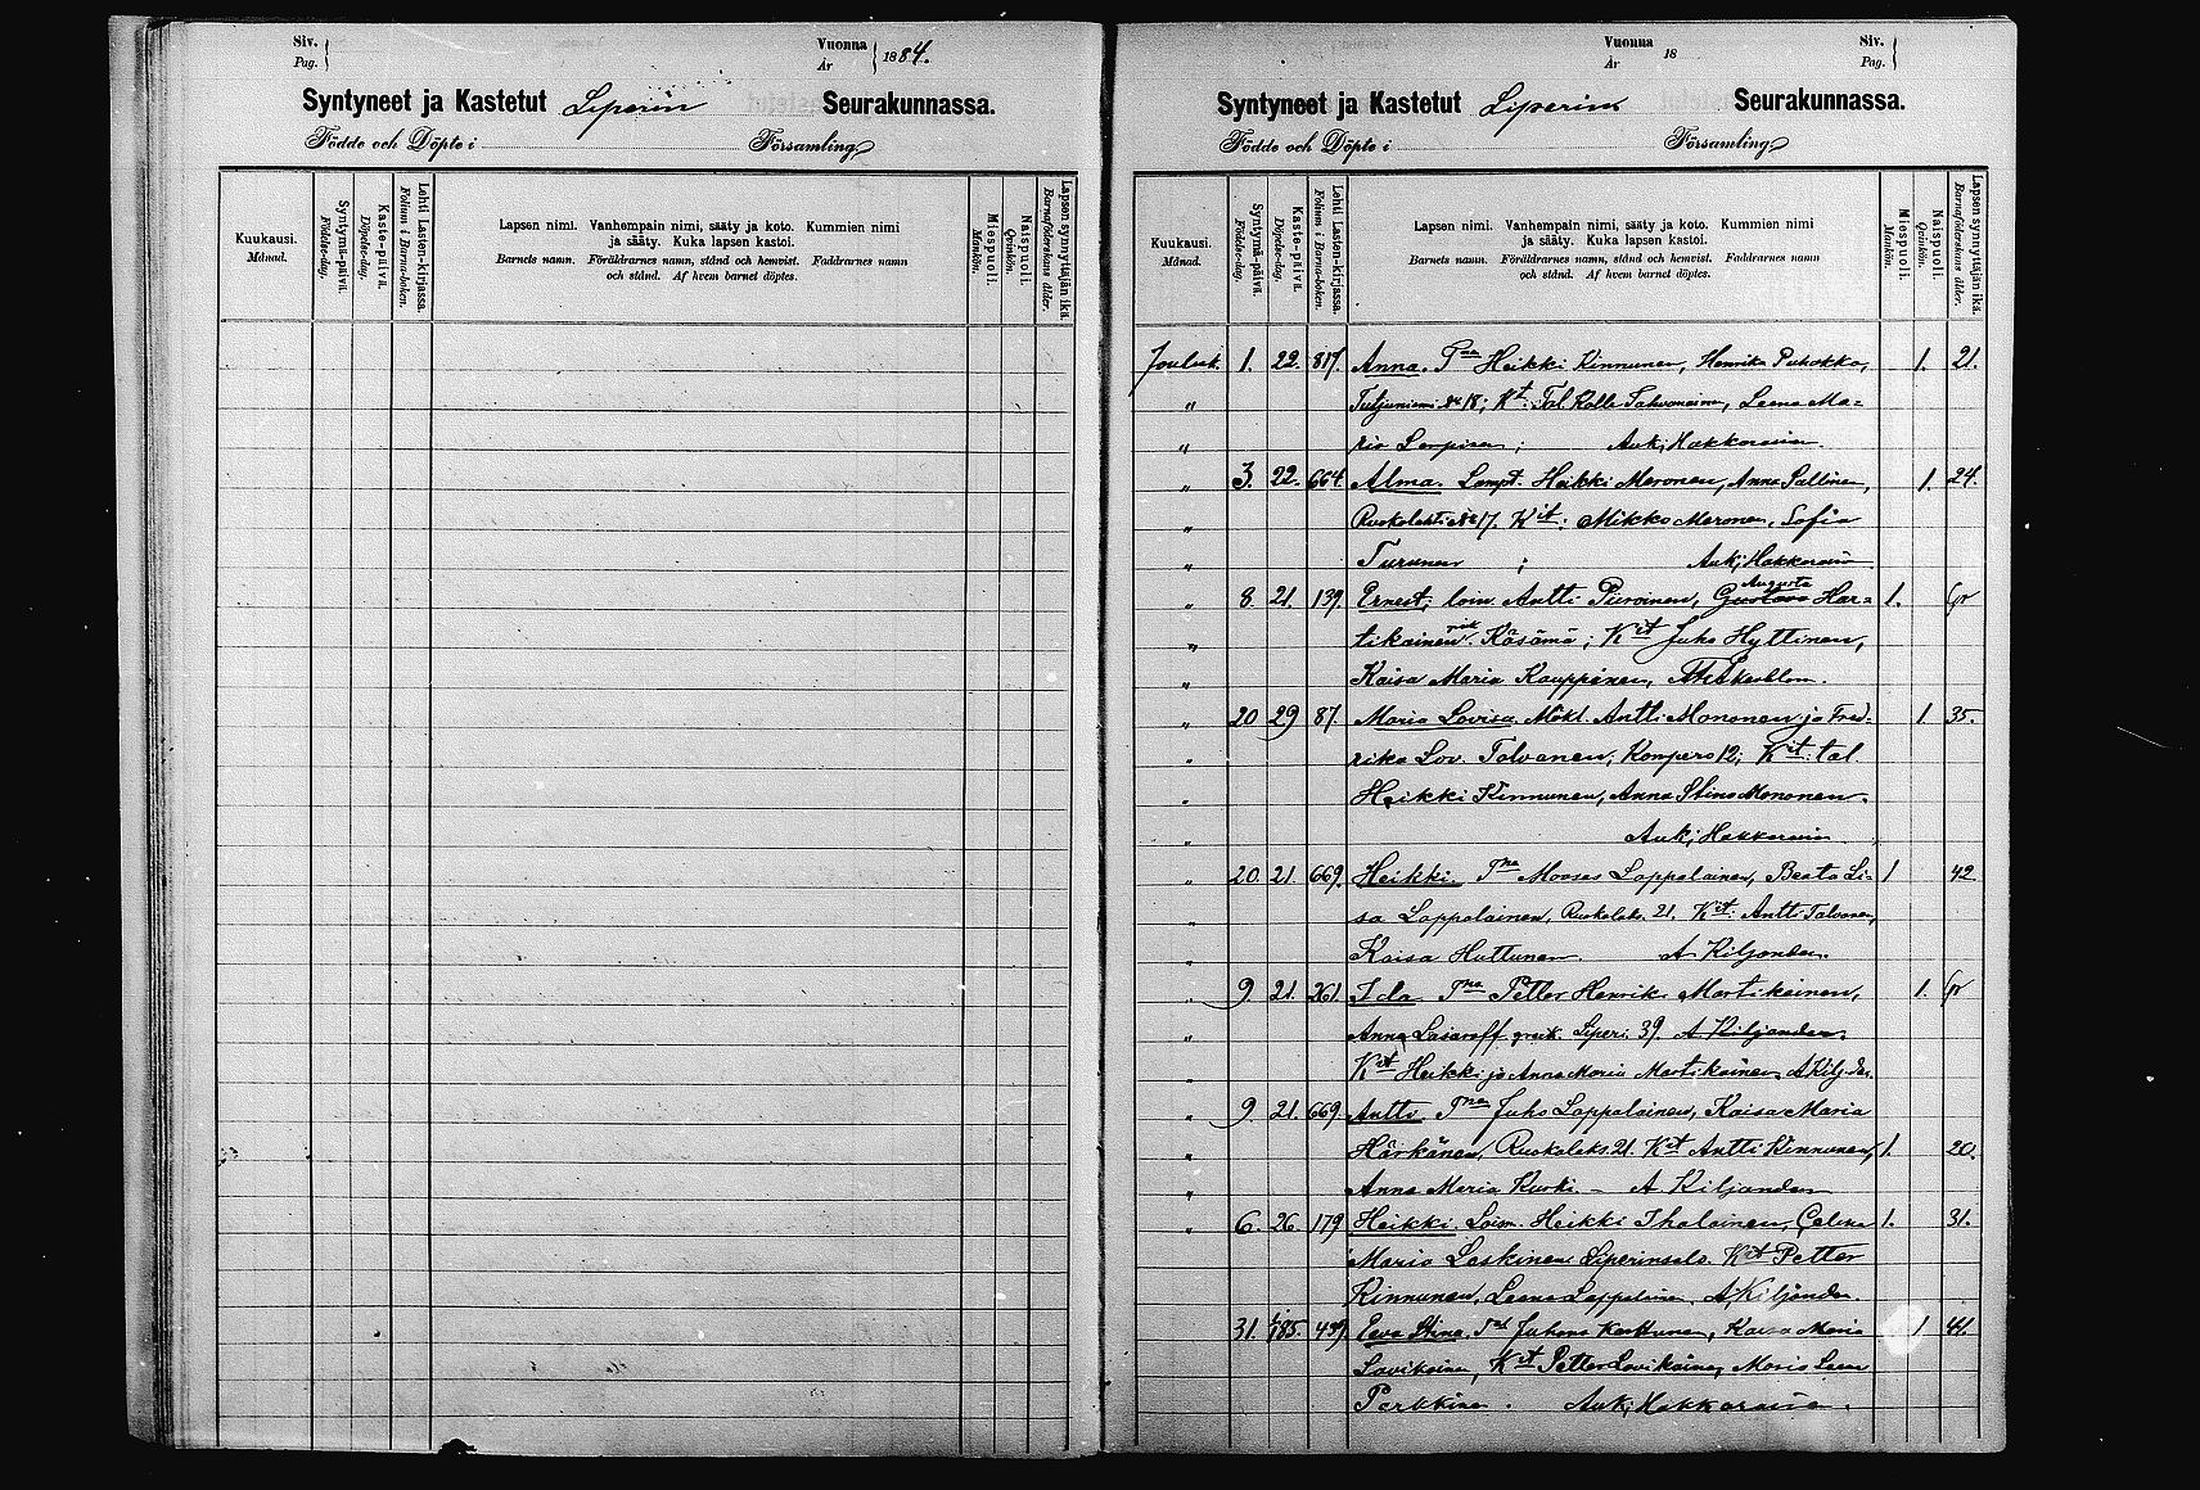 Siv.
Pag.
Vuonna
År
1884.
Syntyneet ja Kastetut Liperin Seurakunnassa.
Födde och Döpte i Församling
Kuukausi.
Månad.
Syntymä-päivä.
Födelse-dag.
Kaste-päivä.
Döpelse-dag.
Lehti Lasten-kirjassa.
Folium i Barna-boken.
Lapsen nimi. Vanhempain nimi, sääty ja koto. Kummien nimi
ja sääty. Kuka lapsen kastoi.
Barnets namn. Föräldrarnes namn, stånd och hemvist. Faddrarnes namn
och stånd. Af hvem barnet döptes.
Miespuoli.
Mankön.
Naispuoli.
Qvinkön.
Lapsen synnyttäjän ikä.
Barnaföderskans ålder.
Vuonna
År
18
Siv.
Pag.
Syntyneet ja Kastetut Liperin Seurakunnassa.
Födde och Döpte i Församling
Kuukausi.
Månad.
Syntymä-päivä.
Födelse-dag.
Kaste-päivä.
Döpelse-dag.
Lehti Lasten-kirjassa.
Folium i Barna-boken.
Lapsen nimi. Vanhempain nimi, sääty ja koto. Kummien nimi
ja sääty. Kuka lapsen kastoi.
Barnets namn. Föräldrarnes namn, stånd och hemvist. Faddrarnes namn
och stånd. Af hvem barnet döptes.
Miespuoli.
Mankön.
Naispuoli.
Qvinkön.
Lapsen synnyttäjän ikä.
Barnaföderskans ålder.
Jouluk. 1. 22. 817. Anna. Tna Heikki Kinnunen, Henrika Puhakka, 1. 21.
" Tutjuniemi № 18; Kt. Tal. Kalle Tahvanainen, Leena Ma=
" ria ; Auk; Hakkarainen
" 3. 22. 664. Alma. Lampt. Heikki Meronen, Anna Pullinen, 1. 24.
" Ruokolahti № 17. Kit: Mikko Meronen, Sofia
" Turunen ; Auk; Hakkarainen
" 8. 21. 139. Ernest; loin. Antti Piiroinen, Augusta Har= 1. Gr
" tikainen. Käsämä; Kit Juho Hyttinen,
" Kaisa Maria Kauppinen, Åkerblom.
" 20 29 87. Maria Lovisa. Mökl. Antti Mononen ja Fred- 1 35.
" rika Lov. Tolvanen, Kompero 12; Kit: tal.
" Heikki Kinnunen, Anna Stina Mononen.
" Auk; Hakkarainen
" 20. 21. 669. Heikki. Tna Mooses Lappalainen, Beata Li= 1 42
" sa Lappalainen, Ruokolaks. 21. Kit: Antti Tolvanen,
" Kaisa Huttunen. A Kiljander.
" 9. 21. 261. Ida Tna Petter Henrik Martikainen, 1. Gr
" Anna Lasaroff greik. Liperi 39. A Kiljander.
" Kit Heikki ja Anna Maria Martikainen. A Kilj-der.
" 9. 21. 669. Antti. Tna Juho Lappalainen, Kaisa Maria
" Härkänen, Ruokolaks. 21. Kit Antti Kinnunen, 1. 20.
" Anna Maria Kurki. – A. Kiljander
" 6. 26. 179 Heikki. Loism. Heikki Ihalainen, Celina 1. 31.
Maria Leskinen Liperinsalo. Kit Petter
Kinnunen, Leena Lappalainen. A. Kiljander.
31. 1/1 85. 439. Eeva Stina. Tal Juhana Karttunen, Kaisa Maria 1 44.
Lavikainen, Kit Petter Lavikainen, Maria Leena
. Auk; Hakkarainen.